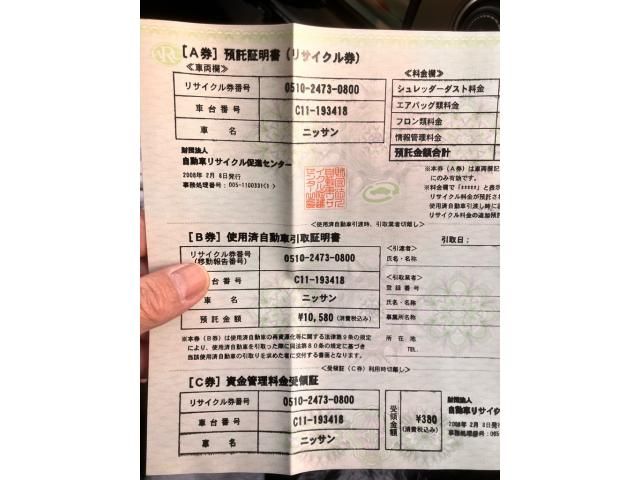 [A券] 預託証明書(リサイクル券)
≪車両欄≫
リサイクル券番号 0510-2473-0800
車台番号 C11-193418
車名 ニッサン
≪料金欄≫
シュレッダーダスト料金
エアバッグ類料金
フロン類料金
情報管理料金
預託金額合計
財団法人
自動車リサイクル促進センター
2008年 2月 8日発行
事務処理番号:005-1100331(1)
※本券(A券)は車両欄記
にのみ有効です。
※料金欄で「*****」と表示
リサイクル料金が預託され
使用済自動車引渡し時に
リサイクル料金の追加預託
<使用済自動車引渡時、引取業者切離し>
[B券] 使用済自動車引取証明書
引取日:
リサイクル券番号
(移動報告番号)
0510-2473-0800
台番号 C11-193418
車名 ニッサン
預託金額 ¥10,580 (消費税込み)
<引渡者>
氏名・名称
<引取業者>
登録番号
氏名・名称
事業所名称
所在地
TEL.
※本券(B券)は使用済自動車の再資源化等に関する法律第9条の規定
により、使用済自動車を引取った際に同法第80条の規定に基づき
当該使用済自動車の引取りを求めた者に交付する書面となります。
<受領証(C券)利用時切離し>
[C券] 資金管理料金受領証
リサイクル券番号 0510-2473-0800
車台番号 C11-193418
車名 ニッサン
受領金額 ¥380
(消費税込み)
財団法人
自動車リサイク
2008年 2月 8日発行
事務処理番号:005